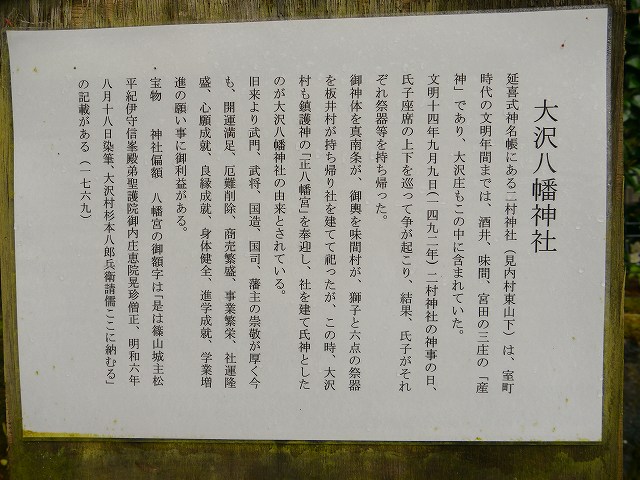 大沢八幡神社
延喜式神名帳にある二村神社（見内村東山下）は、室町
時代の文明年間までは、酒井、味間、宮田の三庄の「産
神」であり、大沢庄もこの中に含まれていた。
文明十四年九月九日（一四九二年）二村神社の神事の日、
氏子座席の上下を巡って争が起こり、結果、氏子がそれ
ぞれ祭器等を持ち帰った。
御神体を真南条が、御輿を味間村が、獅子と六点の祭器
を板井村が持ち帰り社を建てて祀ったが、この時、大沢
村も鎮護神の「正八幡宮」を奉迎し、社を建て氏神とした
のが大沢八幡神社の由来とされている。
旧来より武門、武将、国造、国司、藩主の崇敬が厚く今
も、開運満足、厄難削除、商売繁盛、事業繁栄、社運隆
盛、心願成就、良縁成就、身体健全、進学成就、学業増
進の願い事に御利益がある。
宝物　神社偏額　八幡宮の御額字は「是は篠山城主松
平紀伊守信峯殿弟聖護院御内庄恵院晃珍僧正、明和六年
八月十八日染筆、大沢村杉本八郎兵衛請儒ここに納むる」
の記載がある（一七六九）